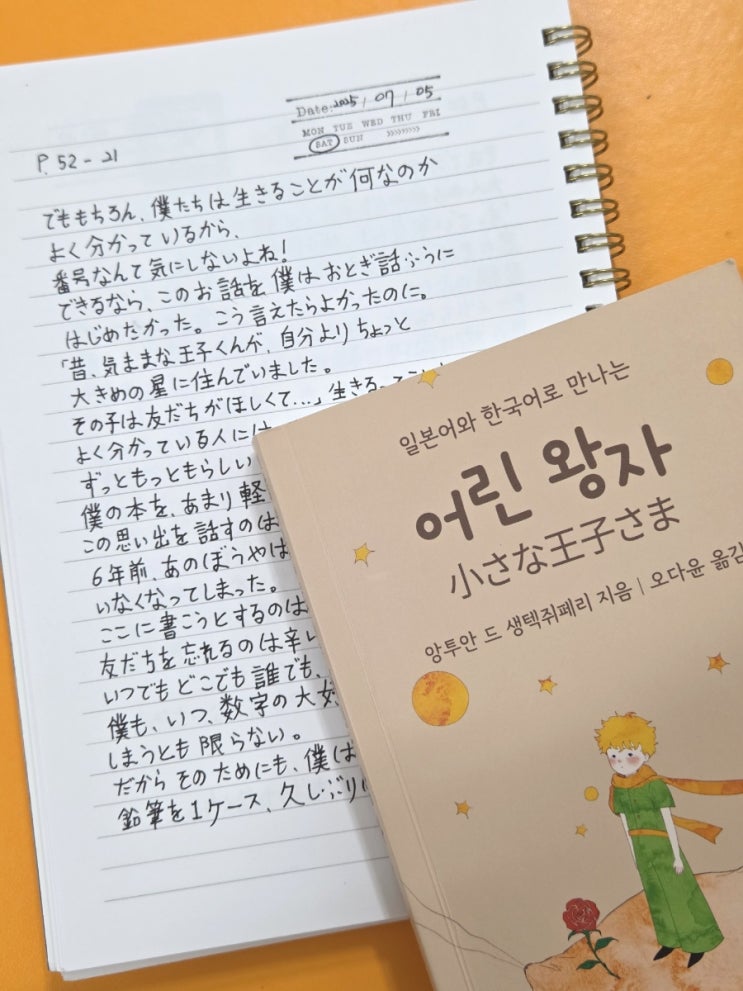 Date: 2025 / 07 / 05
MON TUE WED THU FRI
SAT SUN
P. 52 - 21
でももちろん、僕たちは生きることが何なのか
よく分かっているから、
番号なんて気にしないよね!
できるなら、このお話を僕はおとぎ話ふうに
はじめたかった。こう言えたらよかったのに。
「昔、気ままな王子くんが、自分よりちょっと
大きめの星に住んでいました。
その子は友だちがほしくて…」生きるってこと
よく分かっている人には
ずっともっともらしい
僕の本を、あまり軽
この思い出を話すのは
6年前、あのぼうやは
いなくなってしまった。
ここに書こうとするのは
友だちを忘れるのは辛い
いつでもどこでも誰でも、
僕も、いつ、数字の大好
しまうとも限らない。
だからそのためにも、僕は
鉛筆を1ケース、久しぶりに
일본어와 한국어로 만나는
어린 왕자
小さな王子さま
앙투안 드 생텍쥐페리 지음 | 오다윤 옮김